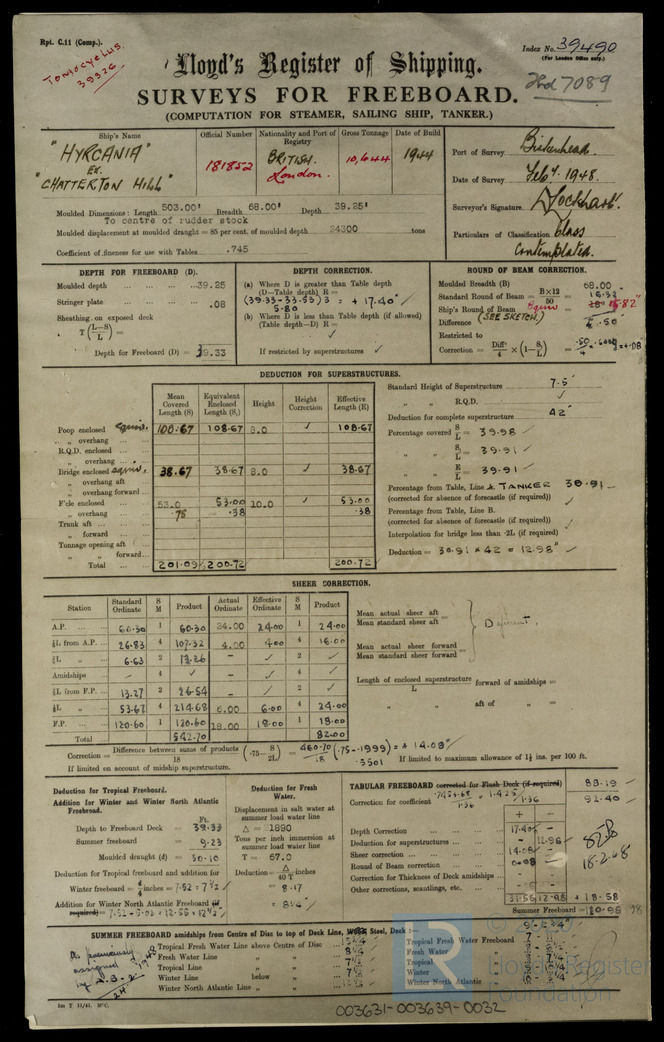 Rpt. C.11 (Comp.).
Tomocyclus.
39326
Index No. 39490
(For London Office only.)
7089
Lloyd's Register of Shipping.
SURVEYS FOR FREEBOARD.
(COMPUTATION FOR STEAMER, SAILING SHIP, TANKER.)
Ship's Name
"HYRCANIA"
EX.
"CHATTERTON HILL"
Official Number
181852
Nationality and Port of Registry
BRITISH.
London.
Gross Tonnage
10,644
Date of Build
1944
Port of Survey Birkenhead.
Date of Survey Feby. 1948.
Surveyor's Signature Lockhart.
Particulars of Classification Class
Contemplated.
Moulded Dimensions: Length 503.00' Breadth 68.00' Depth 39.25'
To centre of rudder stock
Moulded displacement at moulded draught = 85 per cent. of moulded depth 24300 tons
Coefficient of fineness for use with Tables .745
DEPTH FOR FREEBOARD (D).
Moulded depth 39.25
Stringer plate .08
Sheathing on exposed deck
T (L-S/L) =
Depth for Freeboard (D) = 39.33
DEPTH CORRECTION.
(a) Where D is greater than Table depth
(D—Table depth) R =
(39.33-33.53) 3 = + 17.40"
5.80
(b) Where D is less than Table depth (if allowed)
(Table depth—D) R =
If restricted by superstructures
ROUND OF BEAM CORRECTION.
Moulded Breadth (B) 68.00
Standard Round of Beam = B×12/50 = 16.32
Ship's Round of Beam Equiv = 15.82"
Difference (SEE SKETCH) .50"
Restricted to
Correction = Diff/4 × (1-S/L) = +.08
DEDUCTION FOR SUPERSTRUCTURES.
Mean Covered Length (S) Equivalent Enclosed Length (S₁) Height Height Correction Effective Length (E)
Poop enclosed Equiv. 108.67 108.67 8.0 ✓ 108.67
„ overhang
R.Q.D. enclosed
„ overhang
Bridge enclosed equiv. 38.67 38.67 8.0 ✓ 38.67
„ overhang aft
„ overhang forward
F'cle enclosed 53.0 53.00 10.0 ✓ 53.00
„ overhang .75 .38 .38
Trunk aft
„ forward
Tonnage opening aft
„ „ forward
Total 201.09 200.72 200.72
Standard Height of Superstructure 7.5'
„ „ R.Q.D. ✓
Deduction for complete superstructure 42"
Percentage covered S/L = 39.98 ✓
„ „ S₁/L = 39.91 ✓
„ „ E/L = 39.91 ✓
Percentage from Table, Line A TANKER 30.91
(corrected for absence of forecastle (if required)) ✓
Percentage from Table, Line B.
(corrected for absence of forecastle (if required)) ✓
Interpolation for bridge less than ·2L (if required) ✓
Deduction = 30.91 × 42 = 12.98" ✓
SHEER CORRECTION.
Station Standard Ordinate S M Product Actual Ordinate Effective Ordinate S M Product
A.P. 60.30 1 60.30 24.00 24.00 1 24.00
⅙L from A.P. 26.83 4 107.32 4.00 4.00 4 16.00
⅓L „ 6.63 2 13.26 – ✓ 2 ✓
Amidships – 4 ✓ – ✓ 4 ✓
⅓L from F.P. 13.27 2 26.54 – ✓ 2 ✓
⅙L „ 53.67 4 214.68 6.00 6.00 4 24.00
F.P. 120.60 1 120.60 18.00 18.00 1 18.00
Total 542.70 82.00
Mean actual sheer aft =
Mean standard sheer aft
Mean actual sheer forward =
Mean standard sheer forward
Deficient.
Length of enclosed superstructure forward of amidships =
L
„ „ aft of „ =
Correction = Difference between sums of products/18 (.75-S/2L) = 460.70/18 (.75-.1999) = + 14.08"
.5501
If limited on account of midship superstructure.
If limited to maximum allowance of 1½ ins. per 100 ft.
Deduction for Tropical Freeboard.
Addition for Winter and Winter North Atlantic Freeboard.
Ft.
Depth to Freeboard Deck = 39.33
Summer freeboard = 9.23
Moulded draught (d) = 30.10
Deduction for Tropical freeboard and addition for
Winter freeboard = d/4 inches = 7.52 = 7½"
Addition for Winter North Atlantic Freeboard (if required)
Deduction for Fresh Water.
Displacement in salt water at summer load water line
Δ =
Tons per inch immersion at summer load water line
T = 67.0
Deduction = Δ/40 T inches
= 8.17
= 8¼"
TABULAR FREEBOARD corrected for Flush Deck (if required) 88.19
Correction for coefficient 1.425/1.36 92.40
+ −
Depth Correction 17.40 –
Deduction for superstructures – 12.98
Sheer correction 14.08 –
Round of Beam correction 0.08 –
Correction for Thickness of Deck amidships – –
Other corrections, scantlings, etc. – –
31.56 12.98 + 18.58
Summer Freeboard = 110.98
18-2-48
SUMMER FREEBOARD amidships from Centre of Disc to top of Deck Line, Wood, Steel, Deck :—
As previously
assigned
Tropical Fresh Water Line above Centre of Disc
Fresh Water Line „ „
Tropical Line „ „
Winter Line below „
Winter North Atlantic Line „ „
Tropical Fresh Water Freeboard
Fresh Water „
Tropical „
Winter „
Winter North Atlantic „
Lloyd's Register
Foundation
003631-003639-0032